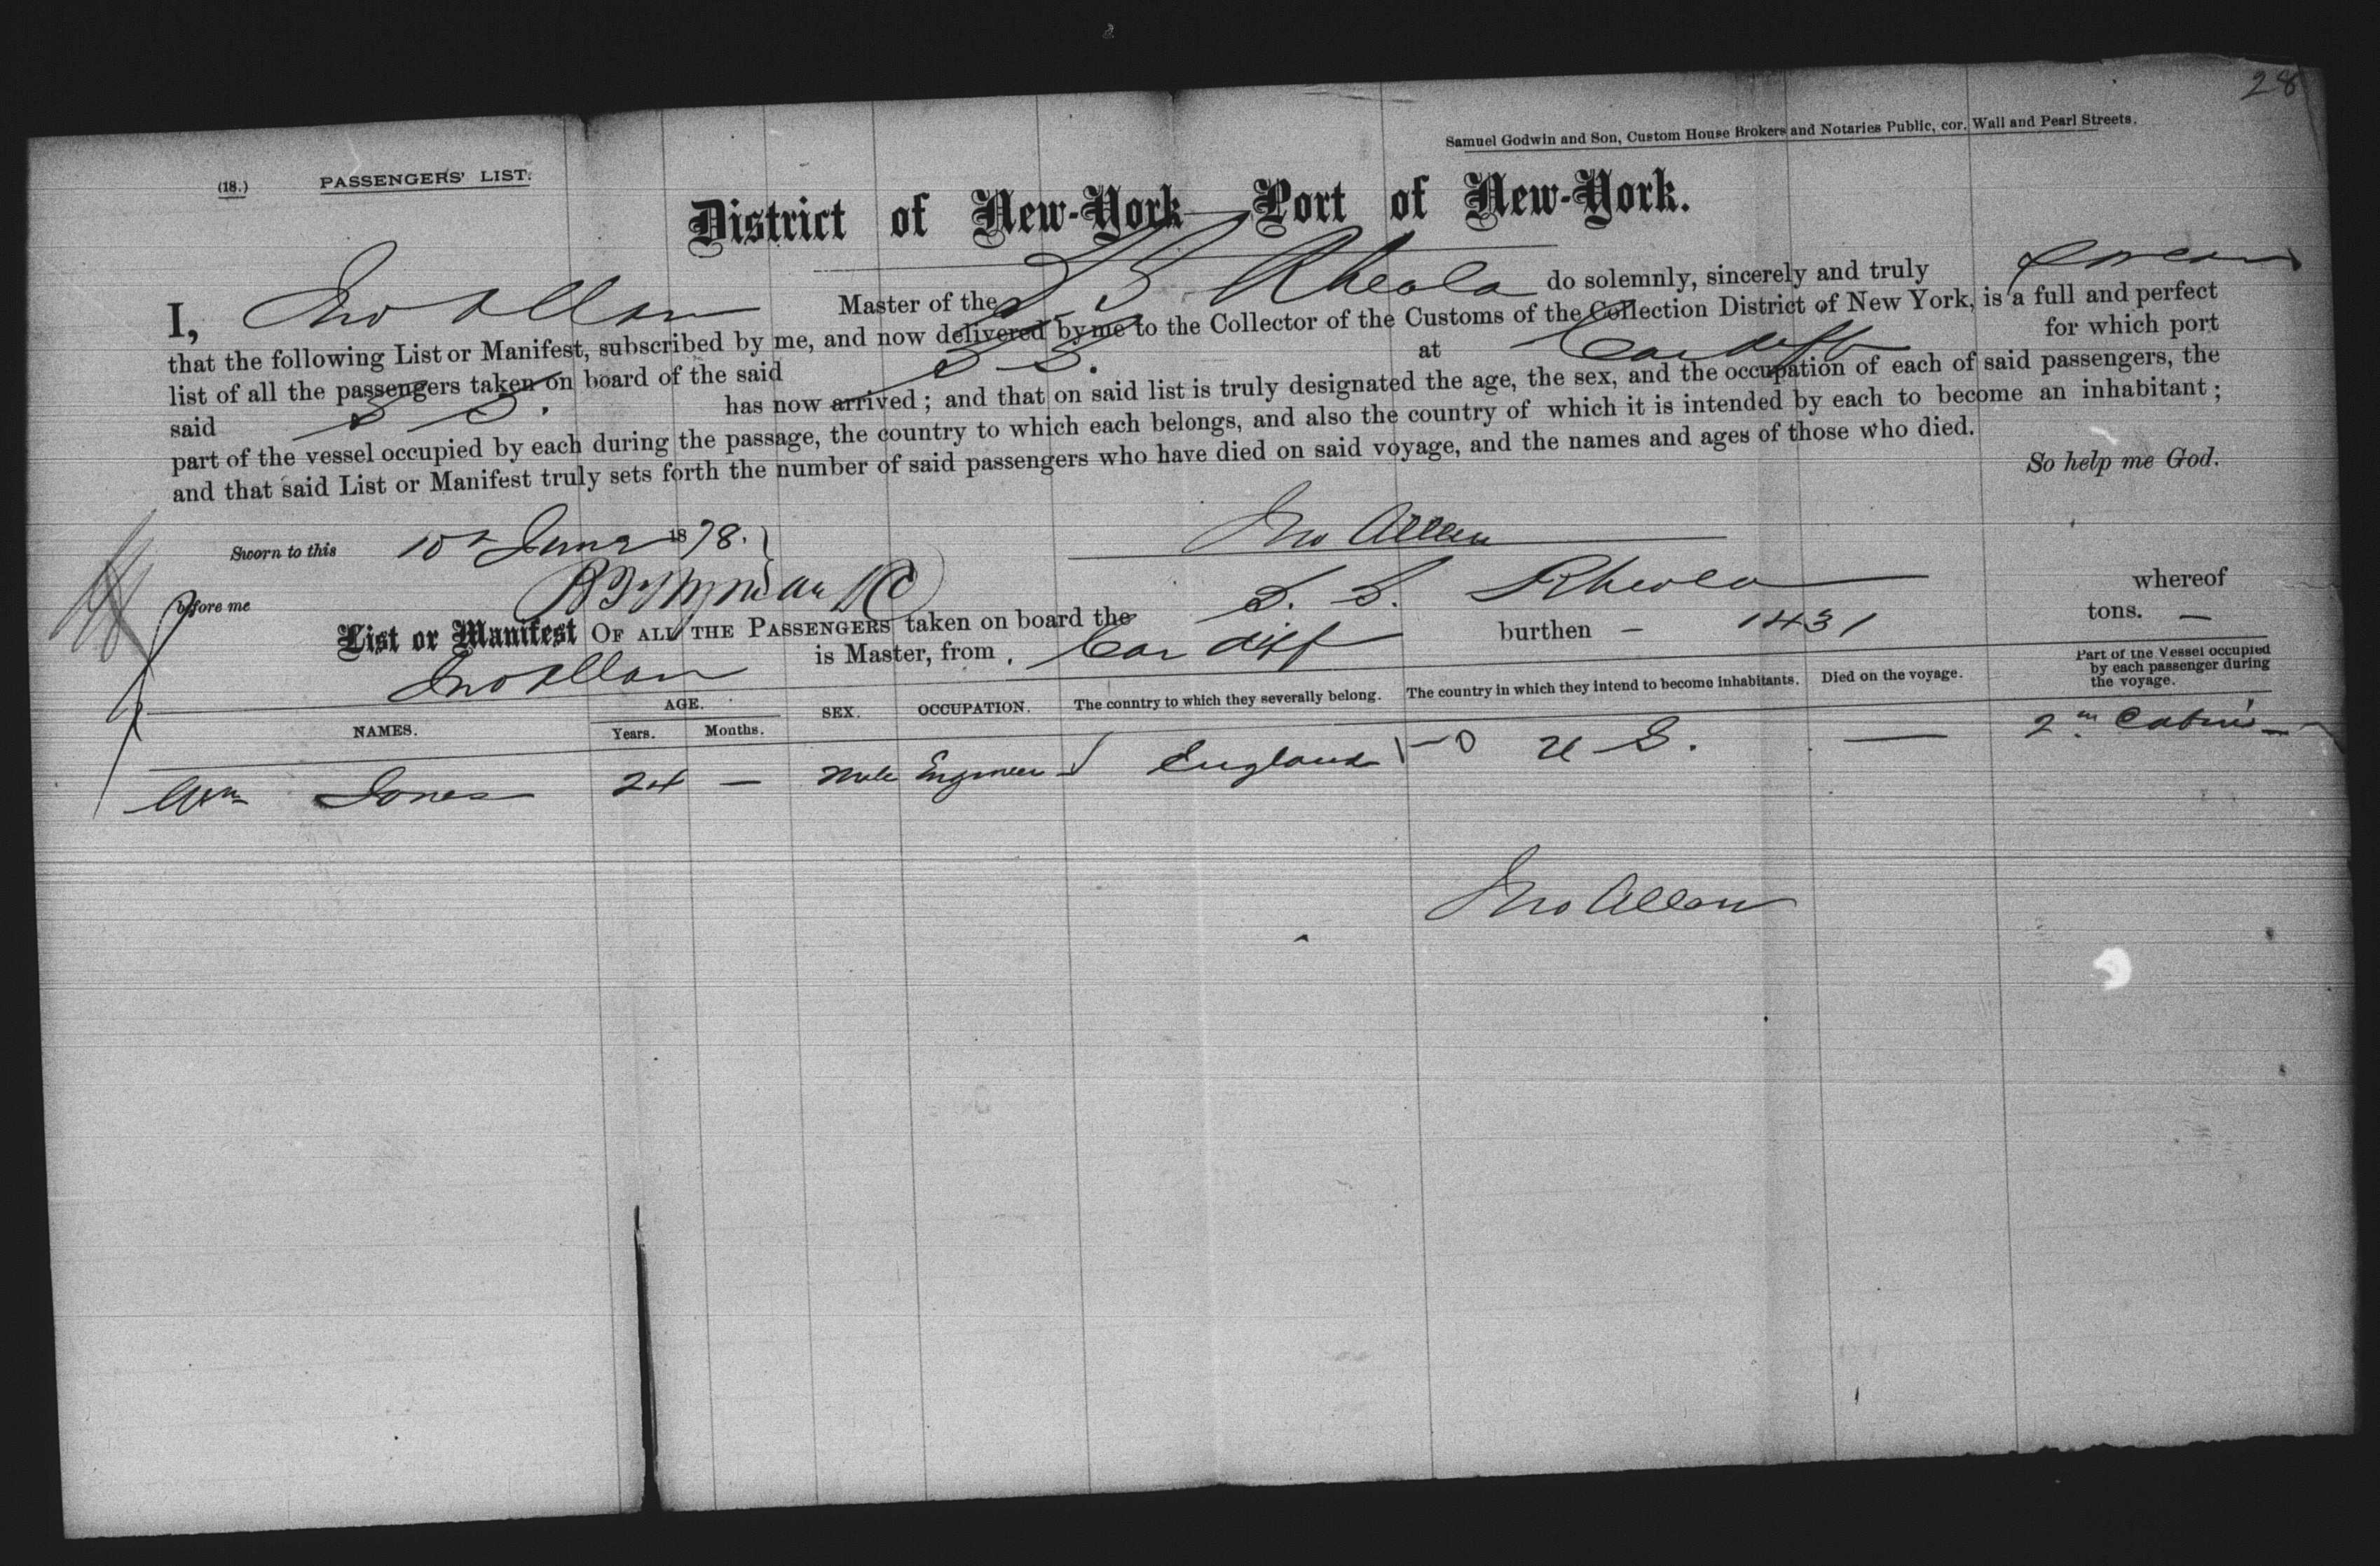 28
Samuel Godwin and Son, Custom House Brokers and Notaries Public, cor. Wall and Pearl Streets.
(18.) PASSENGERS' LIST.
District of New-York—Port of New-York.
I, Jno Allan Master of the S. S Rheola do solemnly, sincerely and truly swear
that the following List or Manifest, subscribed by me, and now delivered by me to the Collector of the Customs of the Collection District of New York, is a full and perfect
list of all the passengers taken on board of the said S S. at Cardiff for which port
said S S. has now arrived; and that on said list is truly designated the age, the sex, and the occupation of each of said passengers, the
part of the vessel occupied by each during the passage, the country to which each belongs, and also the country of which it is intended by each to become an inhabitant;
and that said List or Manifest truly sets forth the number of said passengers who have died on said voyage, and the names and ages of those who died.
So help me God.
Sworn to this 10th June 1878. Jno Allan
before me
List or Manifest OF ALL THE PASSENGERS taken on board the S. S. Rheola whereof
Jno Allan is Master, from Cardiff burthen – 1431 tons. —
NAMES. AGE. Years. Months. SEX. OCCUPATION. The country to which they severally belong. The country in which they intend to become inhabitants. Died on the voyage. Part of the Vessel occupied by each passenger during the voyage.
Wm Jones 24 — Male Engineer England U S. — 2nd Cabin —
Jno Allan